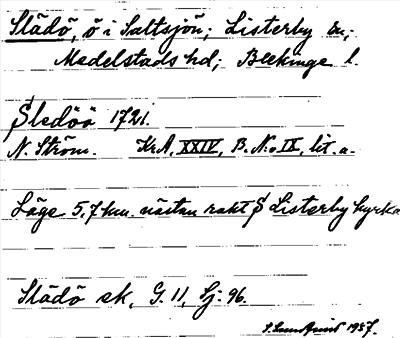 Slädö, ö i Saltsjön; Listerby sn,;
Medelstads hd; Blekinge l.
Sledöö 1721.
N. Ström. KrA, XXIV, B. No IX, lit. a.
Läge 5,7 km. nästan rakt S Listerby kyrka
Slädö ek, G. 11, Sj: 96.
1937.